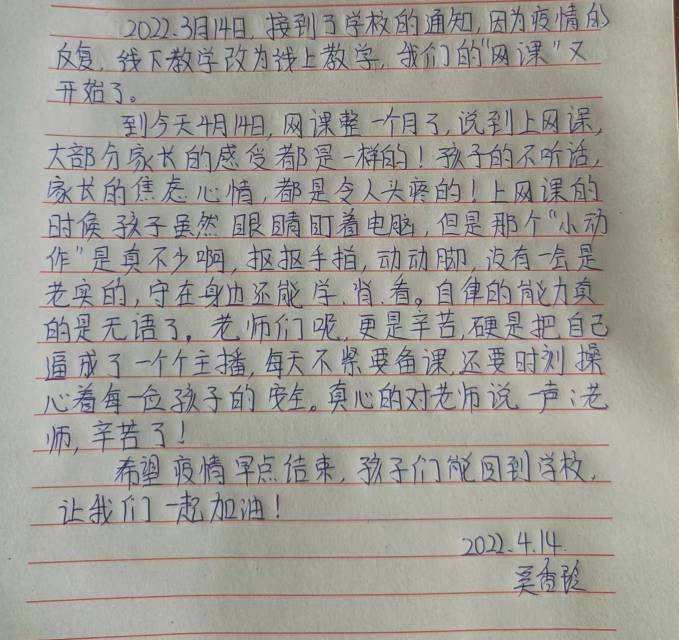 2022.3月14日,接到了学校的通知,因为疫情的
反复,线下教学改为线上教学,我们的"网课"又
开始了。
到今天4月14日,网课整一个月了,说到上网课,
大部分家长的感受都是一样的!孩子的不听话,
家长的焦虑心情,都是令人头疼的!上网课的
时候孩子虽然眼睛盯着电脑,但是那个"小动
作"是真不少啊,抠抠手指,动动脚,没有一会是
老实的,守在身边还能学.肖.看。自律的能力真
的是无语了。老师们呢,更是辛苦,硬是把自己
逼成了一个个主播,每天不紧要备课,还要时刻操
心着每一位孩子的安全。真心的对老师说一声:老
师,辛苦了!
希望疫情早点结束,孩子们能回到学校,
让我们一起加油!
2022.4.14.
吴香玲